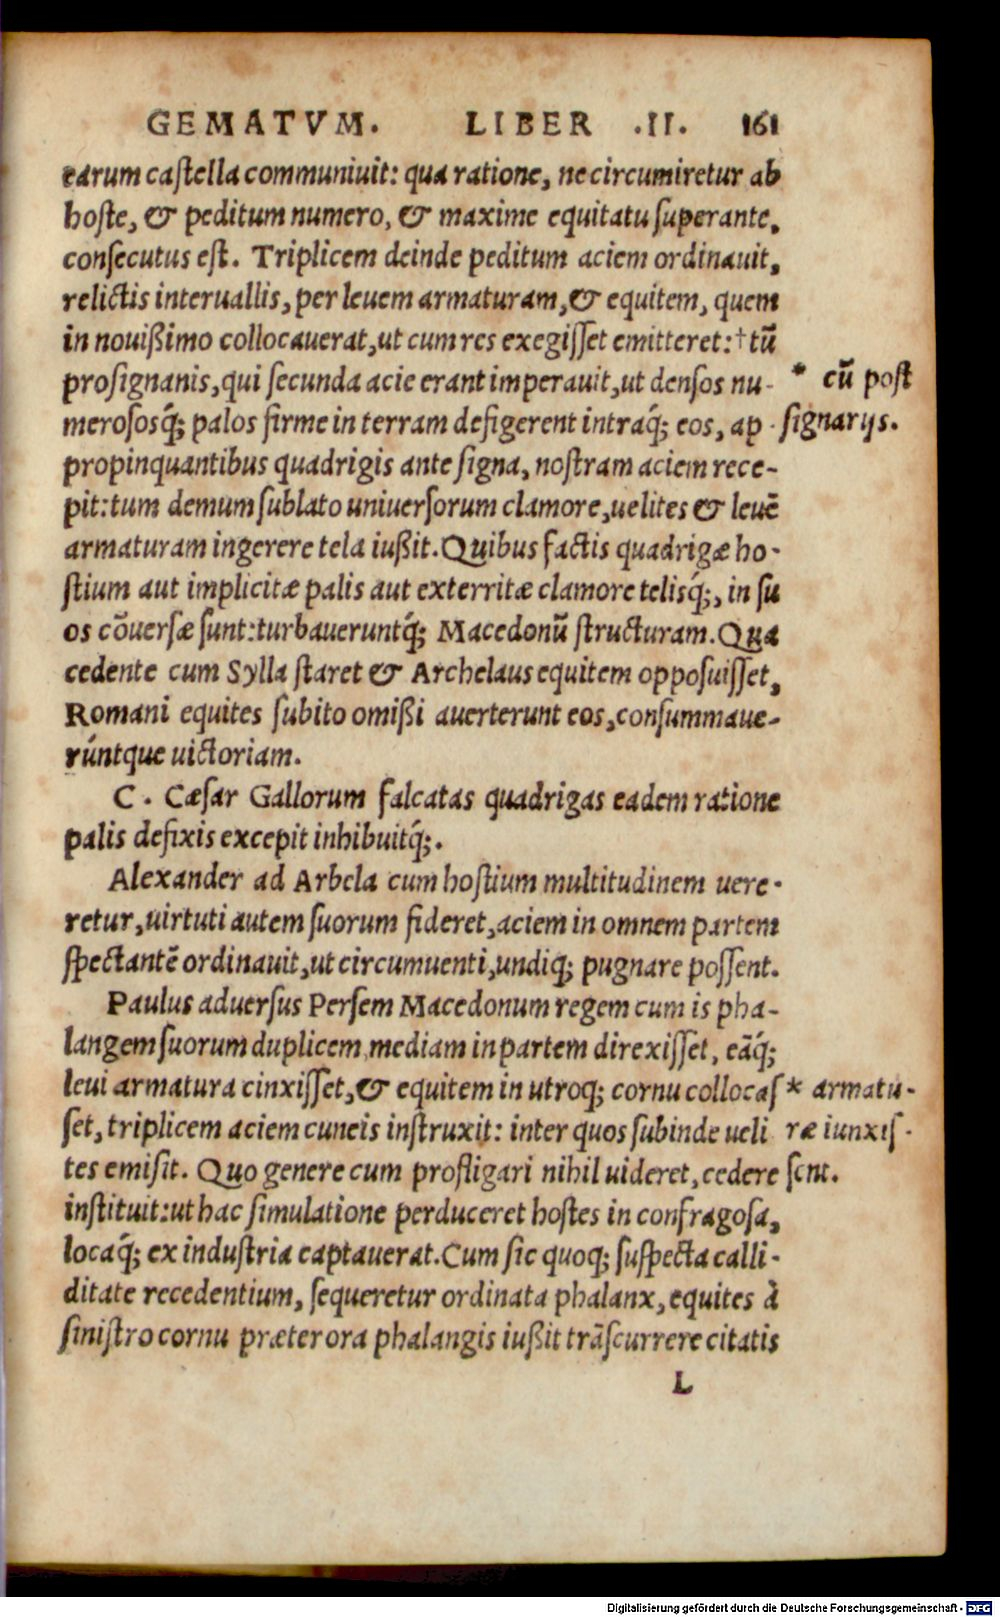 GEMATVM. LIBER .II. 161
earum castella communiuit: qua ratione, ne circumiretur ab
hoste, & peditum numero, & maxime equitatu superante,
consecutus est. Triplicem deinde peditum aciem ordinauit,
relictis interuallis, per leuem armaturam, & equitem, quem
in nouißimo collocauerat, ut cum res exegisset emitteret: †tū
prosignanis, qui secunda acie erant imperauit, ut densos nu-
merososq́; palos firme in terram defigerent intraq́; eos, ap
propinquantibus quadrigis ante signa, nostram aciem rece-
pit: tum demum sublato uniuersorum clamore, uelites & leuē
armaturam ingerere tela iußit. Quibus factis quadrigæ ho-
stium aut implicitæ palis aut exterritæ clamore telisq́;, in su
os cōuersæ sunt: turbaueruntq́; Macedonū structuram. Qua
cedente cum Sylla staret & Archelaus equitem opposuisset,
Romani equites subito omißi auerterunt eos, consummaue-
rúntque uictoriam.
C. Cæsar Gallorum falcatas quadrigas eadem ratione
palis defixis excepit inhibuitq́;.
Alexander ad Arbela cum hostium multitudinem uere-
retur, uirtuti autem suorum fideret, aciem in omnem partem
spectantē ordinauit, ut circumuenti, undiq; pugnare possent.
Paulus aduersus Persem Macedonum regem cum is pha-
langem suorum duplicem mediam in partem direxisset, eāq́;
leui armatura cinxisset, & equitem in utroq; cornu collocas
set, triplicem aciem cuneis instruxit: inter quos subinde ueli
tes emisit. Quo genere cum profligari nihil uideret, cedere
instituit: ut hac simulatione perduceret hostes in confragosa,
locaq́; ex industria captauerat. Cum sic quoq; suspecta calli-
ditate recedentium, sequeretur ordinata phalanx, equites à
sinistro cornu præter ora phalangis iußit trāscurrere citatis
L
* cū post
signarijs.
* armatu-
ræ iunxis-
sent.
Digitalisierung gefördert durch die Deutsche Forschungsgemeinschaft - DFG